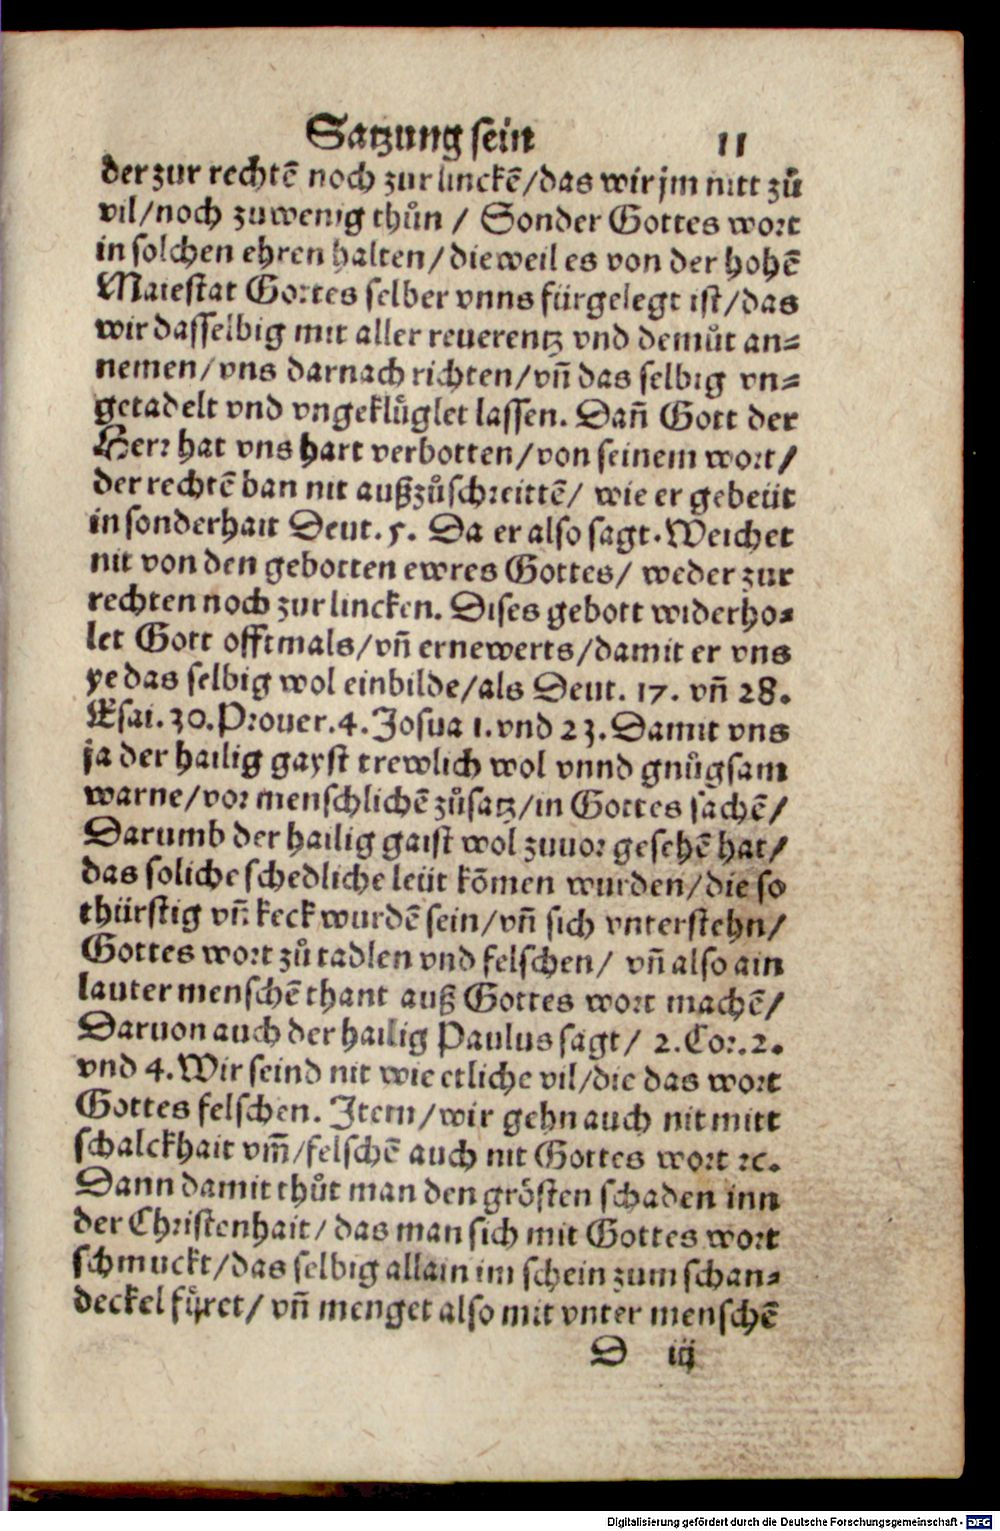 Satzung sein 11
der zur rechtē noch zur linckē/das wir jm nitt zů
vil/noch zuwenig thůn / Sonder Gottes wort
in solchen ehren halten/dieweil es von der hohē
Maiestat Gottes selber vnns fürgelegt ist/das
wir dasselbig mit aller reuerentz vnd demůt an=
nemen/vns darnach richten/vn̄ das selbig vn=
getadelt vnd vngeklůglet lassen. Dan̄ Gott der
Herr hat vns hart verbotten/von seinem wort/
der rechtē ban nit außzůschreittē/ wie er gebeüt
in sonderhait Deut. 5. Da er also sagt. Weichet
nit von den gebotten ewres Gottes/ weder zur
rechten noch zur lincken. Dises gebott widerho=
let Gott offtmals/vn̄ ernewerts/damit er vns
ye das selbig wol einbilde/als Deut. 17. vn̄ 28.
Esai. 30. Prouer. 4. Josua 1. vnd 23. Damit vns
ja der hailig gayst trewlich wol vnnd gnůgsam
warne/vor menschlichē zůsatz/in Gottes sachē/
Darumb der hailig gaist wol zuuor gesehē hat/
das soliche schedliche leüt kōmen wurden/die so
thürstig vn̄ keck wurdē sein/vn̄ sich vnterstehn/
Gottes wort zů tadlen vnd felschen/ vn̄ also ain
lauter menschē thant auß Gottes wort machē/
Daruon auch der hailig Paulus sagt/ 2. Cor. 2.
vnd 4. Wir seind nit wie etliche vil/die das wort
Gottes felschen. Item/wir gehn auch nit mitt
schalckhait vm̄/felschē auch nit Gottes wort ꝛc.
Dann damit thůt man den grösten schaden inn
der Christenhait/ das man sich mit Gottes wort
schmuckt/das selbig allain im schein zum schan=
deckel füret/ vn̄ menget also mit vnter menschē
D iij
Digitalisierung gefördert durch die Deutsche Forschungsgemeinschaft - DFG